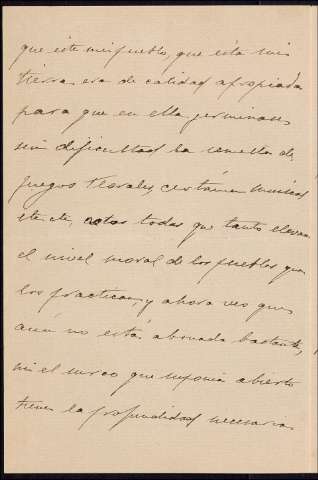 que éste mi pueblo, que ésta mi
tierra era de calidad apropiada
para que en ella germinase
sin dificultad la semilla de
Juegos Florales, certámen musical
etc etc, actos todos que tanto elevan
el nivel moral de los pueblos que
los practican, y ahora veo que
aún no está abonada bastante,
ni el surco que suponía abierto
tiene la profundidad necesaria